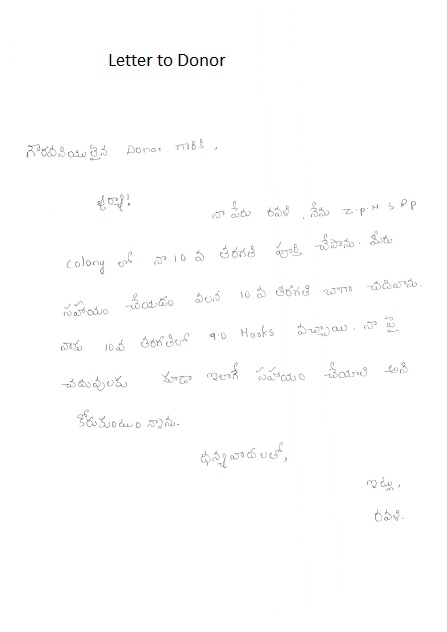 Letter to Donor
గౌరవనియులైన Donor గారికి,
అర్యా!
నా పేరు రవళి, నేను Z.P.H.S RP
colony లో నా 10 వ తరగతి పూర్తి చేసాను. మీరు
సహాయం చేయడం వలన 10 వ తరగతి బాగా చదివాను.
నాకు 10వ తరగతిలో 9.0 Marks వచ్చాయి. నా పై
చదువులకు కూడా ఇలాగే సహాయం చేయాలి అని
కోరుకుంటున్నాను.
ధన్యవాదలతో,
ఇట్లు,
రవళి.